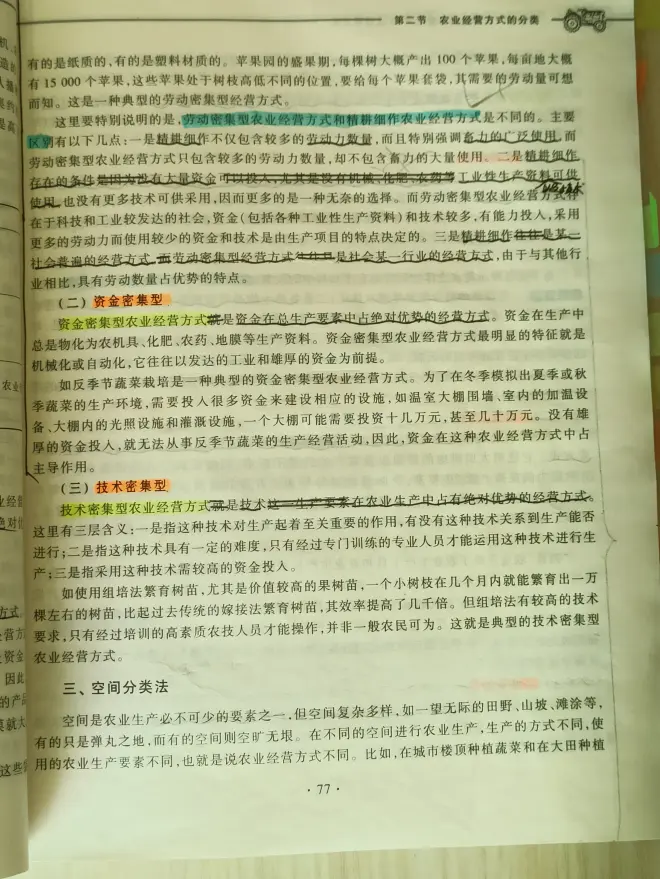 第二节 农业经营方式的分类
有的是纸质的,有的是塑料材质的。苹果园的盛果期,每棵树大概产出 100 个苹果,每亩地大概
有 15 000 个苹果,这些苹果处于树枝高低不同的位置,要给每个苹果套袋,其需要的劳动量可想
而知。这是一种典型的劳动密集型经营方式。
这里要特别说明的是,劳动密集型农业经营方式和精耕细作农业经营方式是不同的。主要
区别有以下几点:一是精耕细作不仅包含较多的劳动力数量,而且特别强调畜力的广泛使用,而
劳动密集型农业经营方式只包含较多的劳动力数量,却不包含畜力的大量使用。二是精耕细作
存在的条件是因为没有大量资金可以投入,尤其是没有机械、化肥、农药等工业性生产资料可供
使用,也没有更多技术可供采用,因而更多的是一种无奈的选择。而劳动密集型农业经营方式
在于科技和工业较发达的社会,资金(包括各种工业性生产资料)和技术较多,有能力投入,采用
更多的劳动力而使用较少的资金和技术是由生产项目的特点决定的。三是精耕细作往往是某一
社会普遍的经营方式,而劳动密集型经营方式往往只是社会某一行业的经营方式,由于与其他行
业相比,具有劳动数量占优势的特点。
(二)资金密集型
资金密集型农业经营方式就是资金在总生产要素中占绝对优势的经营方式。资金在生产中
总是物化为农机具、化肥、农药、地膜等生产资料。资金密集型农业经营方式最明显的特征就是
机械化或自动化,它往往以发达的工业和雄厚的资金为前提。
如反季节蔬菜栽培是一种典型的资金密集型农业经营方式。为了在冬季模拟出夏季或秋
季蔬菜的生产环境,需要投入很多资金来建设相应的设施,如温室大棚围墙、室内的加温设
备、大棚内的光照设施和灌溉设施,一个大棚可能需要投资十几万元,甚至几十万元。没有雄
厚的资金投入,就无法从事反季节蔬菜的生产经营活动,因此,资金在这种农业经营方式中占
主导作用。
(三)技术密集型
技术密集型农业经营方式就是技术这一生产要素在农业生产中占有绝对优势的经营方式。
这里有三层含义:一是指这种技术对生产起着至关重要的作用,有没有这种技术关系到生产能否
进行;二是指这种技术具有一定的难度,只有经过专门训练的专业人员才能运用这种技术进行生
产;三是指采用这种技术需较高的资金投入。
如使用组培法繁育树苗,尤其是价值较高的果树苗,一个小树枝在几个月内就能繁育出一万
棵左右的树苗,比起过去传统的嫁接法繁育树苗,其效率提高了几千倍。但组培法有较高的技术
要求,只有经过培训的高素质农技人员才能操作,并非一般农民可为。这就是典型的技术密集型
农业经营方式。
三、空间分类法
空间是农业生产必不可少的要素之一,但空间复杂多样,如一望无际的田野、山坡、滩涂等,
有的只是弹丸之地,而有的空间则空旷无垠。在不同的空间进行农业生产,生产的方式不同,使
用的农业生产要素不同,也就是说农业经营方式不同。比如,在城市楼顶种植蔬菜和在大田种植
· 77 ·